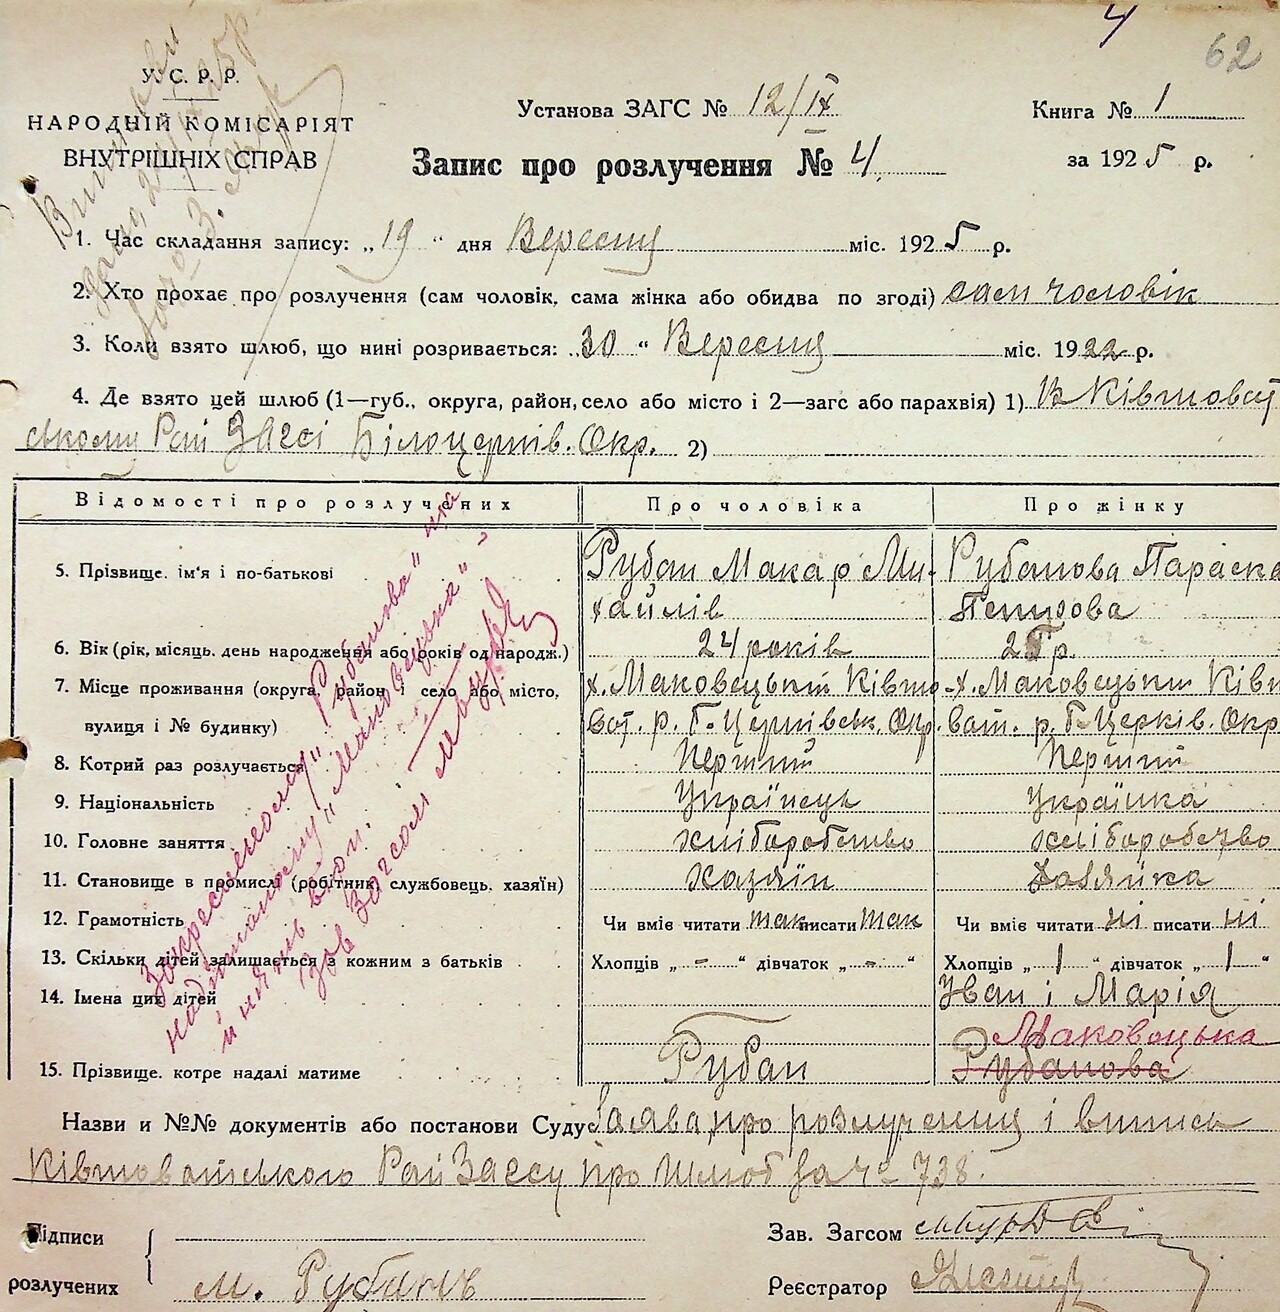 4
62
У. С. Р. Р.
НАРОДНІЙ КОМІСАРІЯТ
ВНУТРІШНІХ СПРАВ
Установа ЗАГС № 12/IX
Книга № 1
Запис про розлучення № 4
за 1925 р.
1. Час складання запису: „19“ дня Вересня міс. 1925 р.
2. Хто прохає про розлучення (сам чоловік, сама жінка або обидва по згоді) сам чоловік
3. Коли взято шлюб, що нині розривається: 30 “ Вересня міс. 1922 р.
4. Де взято цей шлюб (1—губ., округа, район, село або місто і 2—загс або парахвія) 1) В Ківшоват
ському Рай ЗАГСі Білоцерків. Окр. 2)
Відомості про розлучених
Про чоловіка
Про жінку
5. Прізвище. ім'я і по-батькові
Рубан Макар Ми-
хайлів
Рубанова Параска
Петрова
6. Вік (рік, місяць. день народження або років од народж.) 24 років
7. Місце проживання (округа, район і село або місто,
вулиця і № будинку)
х. Маковецький Ківшо-
ват. р. Б-Церківськ. Окр.
х. Маковецький Ківш
ват. р. Б-Церків. Окр
8. Котрий раз розлучається Перший Перший
9. Національність Українець Українка
10. Головне заняття хліборобство хліборобство
11. Становище в промислі (робітник, службовець. хазяїн) Хазяїн Хазяйка
12. Грамотність Чи вміє читати так писати так Чи вміє читати ні писати ні
13. Скільки дітей залишається з кожним з батьків Хлопців „-“ дівчаток „-“ Хлопців „1“ дівчаток „1“
14. Імена цих дітей Іван і Марія
Маковецька
15. Прізвище. котре надалі матиме Рубан Рубанова
Закресленому „Рубанова“ та
надписаному „Маковецька“
й няти вірои.
Зав Загсом
Назви и №№ документів або постанови Суду Заява про розлучення і випись
Ківшоватського РайЗагсу про шлюб за ч- 738.
Підписи
розлучених
М. Рубанъ
Зав. Загсом
Реєстратор